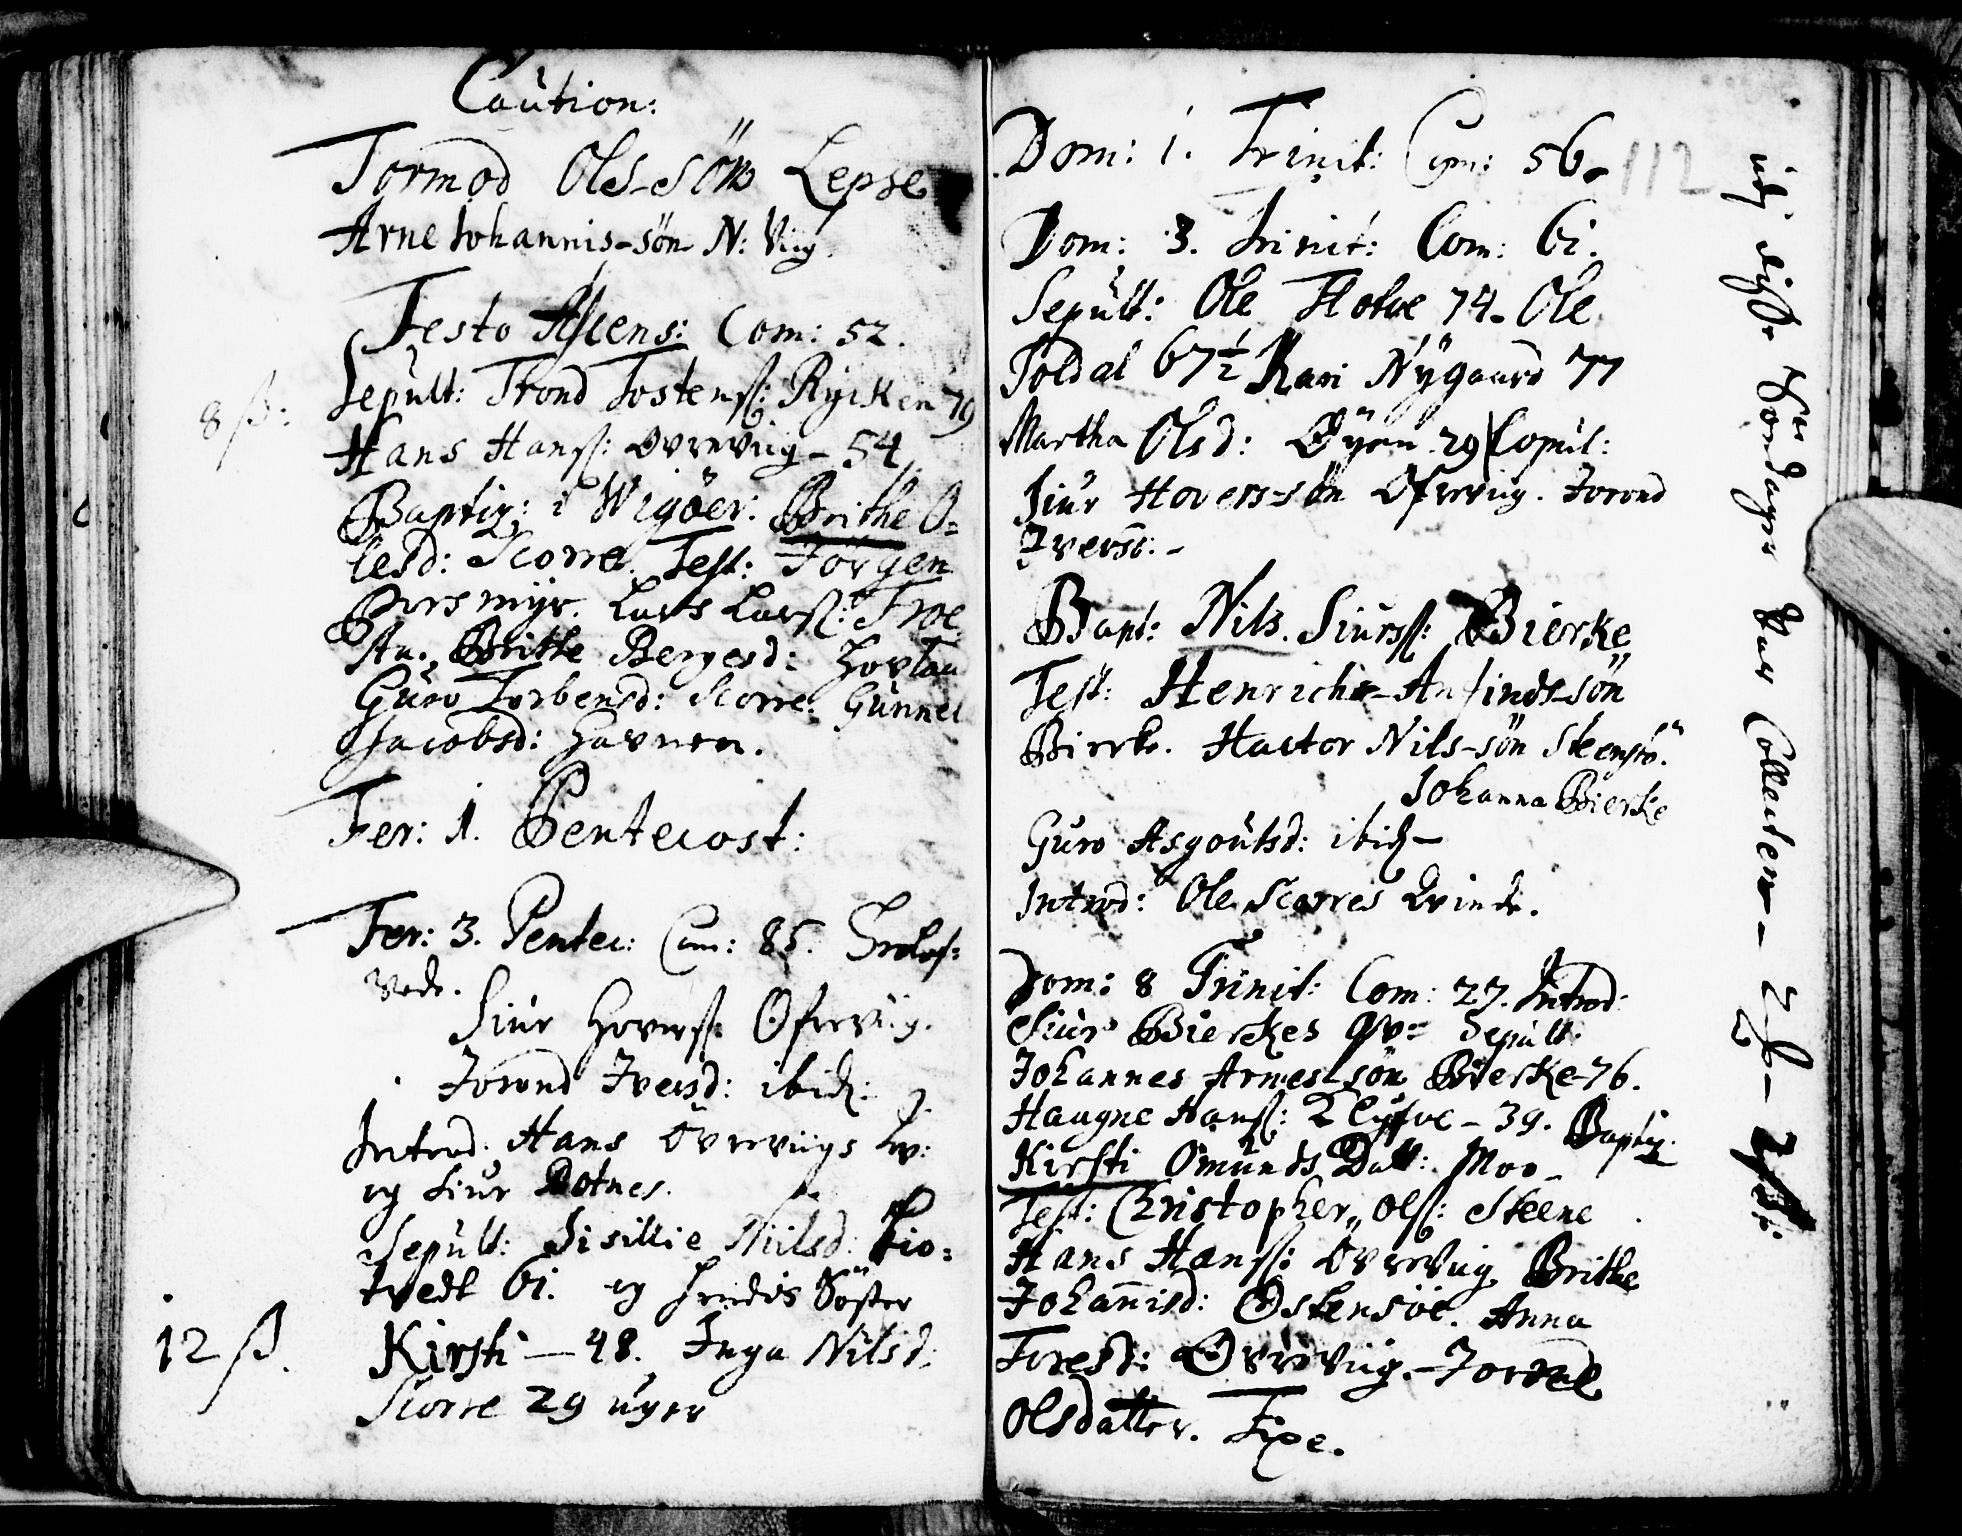 Caution:
Tormod Ols-sön Lepse
Arne Johannis-sön N: Viig.
Festo Ascens: Com: 52.
8 ß: Sepult: Trond Tostenß: Rycken 79
Hans Hanß: Övreviig - 54.
Baptiz: i Wigöer: Brithe O-
lesd: Scorre. Test: Jörgen
Porsmyr. Lars Larß: Troe
Brithe Bergesd: Hovland
Guro Torbensd: Scorre. Gunnel
Jacobsd: Havnen.
Fer: 1. Pentecost:
Fer: 3. Pentec: Com: 85. Trolof-
vede.
Siur Hoverß: Ofreviig.
Jorond Iversd: ibid:
Introd. Hans Övreviigs Kv:
og Siur Botnes.
Sepult: Sisillie Nilsd: Tio-
tvedt 61. og hendis Söster
12 ß. Kirsti - 48. Inga Nilsd:
Scorre 29 uger
Dom: 1. Trinit: Com: 56.
112
Dom: 3. Trinit: Com: 61.
Sepult: Ole Hotve 74. Ole
Soldal 67½ Kari Nygaard 77
Martha Olsd: Öyen 29 Copul:
Siur Hovers-sön Ofreviig. Jorond
Iversd: -
Bapt: Nils Siursß: Bierke
Test: Henrich-Anfinds-sön
Bierke. Hactor Nils-sön Steenstö.
Johanna Bierke
Guro Asgoutsd: ibid-
Introd: Ole Scorres Qvinde.
Dom: 8 Trinit: Com: 27. Introd:
Siur Bierkes Qv: Sepult:
Johannes Arnessön Bierke-76.
Haugne Hanß: - 39. Baptiz:
Kirsti Omunds Datt: Moo
Test: Christopher Olß: Steene
Hans Hanß: Övreviig Brithe
Johannisd: Östensöe. Anna
Toresd: Övreviig.-Jorond
Olsdatter. Tixe.
udj disse Söndager var Collecten - 2 ß -